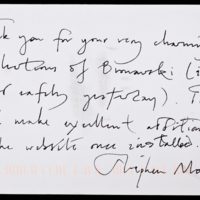 you for your very charming
of Bronowski
safely yesterday).
make excellent additions
the website once installed.
Stephen Mo